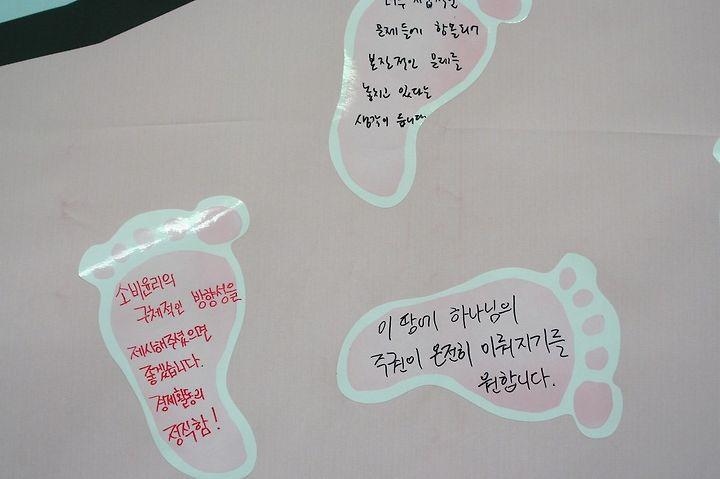 문제들에 함몰되거
본질적인 문제를
놓치고 있다는
생각이 듭니다.
소비윤리의
구체적인 방향성을
제시해주셨으면
좋겠습니다.
경제활동의
정직함!
이 땅에 하나님의
주권이 온전히 이뤄지기를
원합니다.